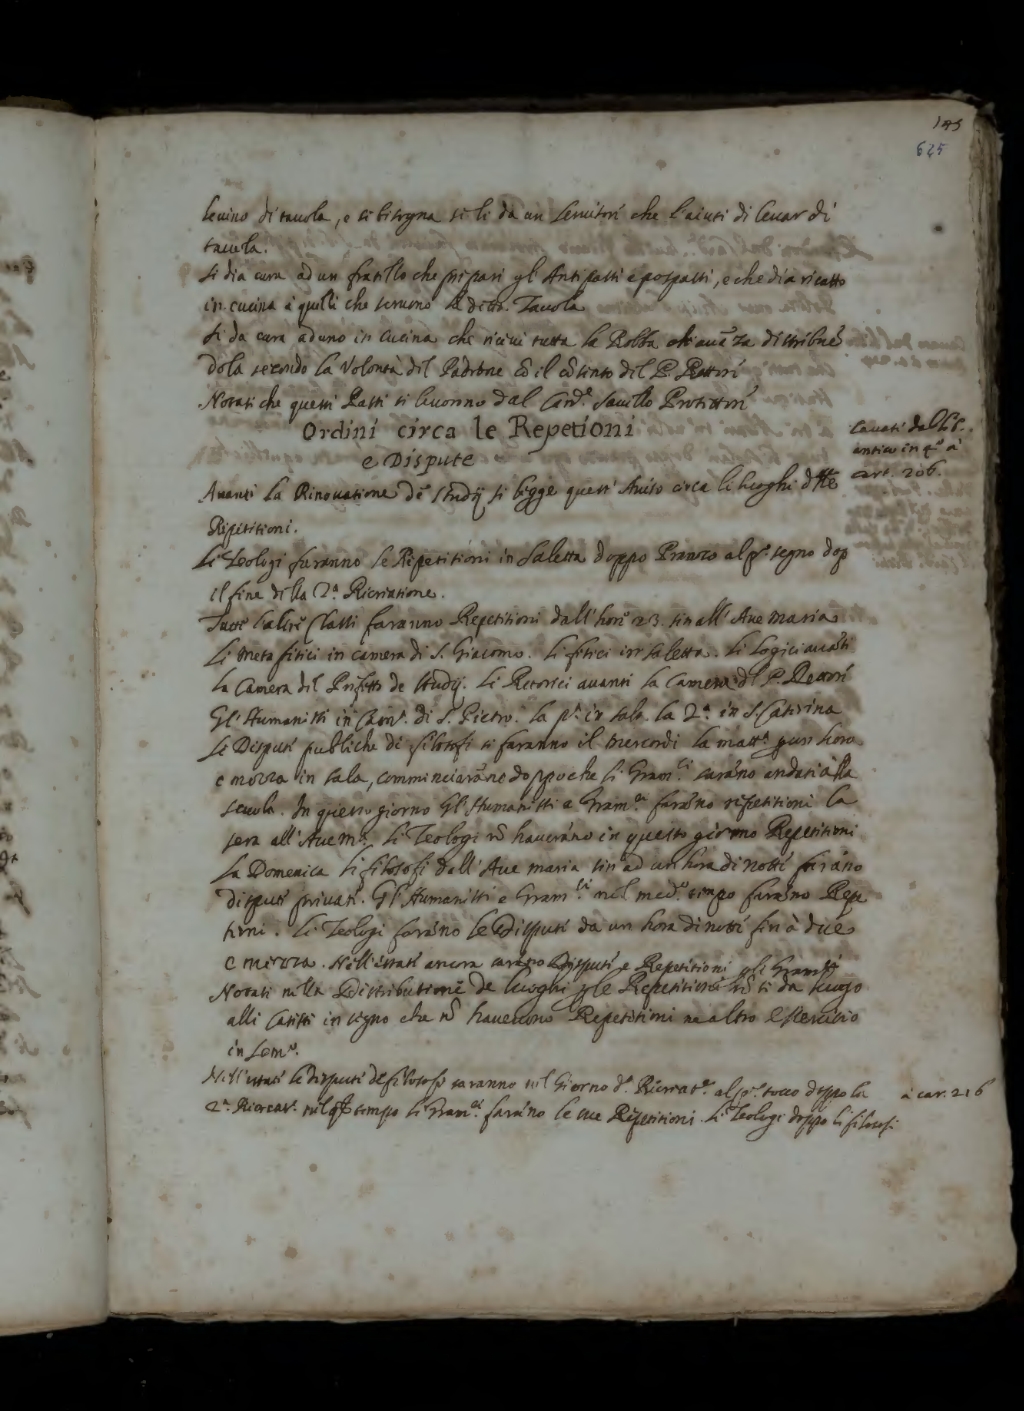 145
625
levino di tavola, e si bisogna si li da un servitori che l'aiuti di levar di
tavola.
Si dia cura ad un fratello che prepari gl'Antipasti e pospasti, e che dia ricatto
in cucina à quelli che servono la detta Tavola
Si da cura ad uno in cucina che ricivi tutta la Robba che avāza distribuē
dola secondo la Volontà dil Padrone cō il cōsento del P. Rettori
Notati che questi Pasti si levorno dal Card. Savello Protettori
Ordini circa le Repetioni
e Dispute
Cavati dal lib.
antico in 4° à
cart. 206.
Avanti la Rinovatione de Studij si legge questi Aviso circa li luoghi dtte
Ripititioni.
Li Teologi faranno le Repetitioni in Saletta doppo Pranzo al p° segno dop
il fine della 2a Ricriatione.
Tutte l'altre Classi faranno Repetitioni dall'hore 23. sin all'Ave Maria
Li Metafisici in camera di S. Giacomo. Li fisici in saletta. Li Logici avāti
la Camera dil Prifetto de Studij. Li Retorici avanti la Camera dl P. Rettori
Gl'Humanisti in Cam. di S. Pietro. la p.a in sala. la 2a in S. Caterina
Le Disputi publiche di filosofi si faranno il Mercordi la matt.a p un hora
e mezza in sala, comminciarāno doppo che li Gram.ci sarāno andati alla
scuola. In questo giorno Gl'Humanisti e Gram.ci farāno repetitioni la
sera all'Ave M.a Li Teologi nō haverāno in questo giorno Repetitioni
La Domenica li filosofi dall'Ave maria sin ad un hora di notti farāno
disputi privati. Gl'Humanisti e Gram.ci nel med.o tempo farāno Repe
tinni. Li Teologi farāno le disputi da un hora di notti fin à due
e mezza. Nell'estati ancora sarāno Disputi e Repetitioni gli Gram.ci
Notati nella Distributione de luoghi p le Repetitioni nō si da luogo
alli Casisti in segno che nō havessono Repetitioni ne altro Essercitio
in Sem.o.
Nell'estati le disputi de filosofi saranno nel Giorno dª Ricreat.e al p.o tocco doppo la
à car. 216
2a Ricreat. nel qual tempo li Gram.ci farāno le sue Ripetitioni. Li Teologi doppo li filosofi